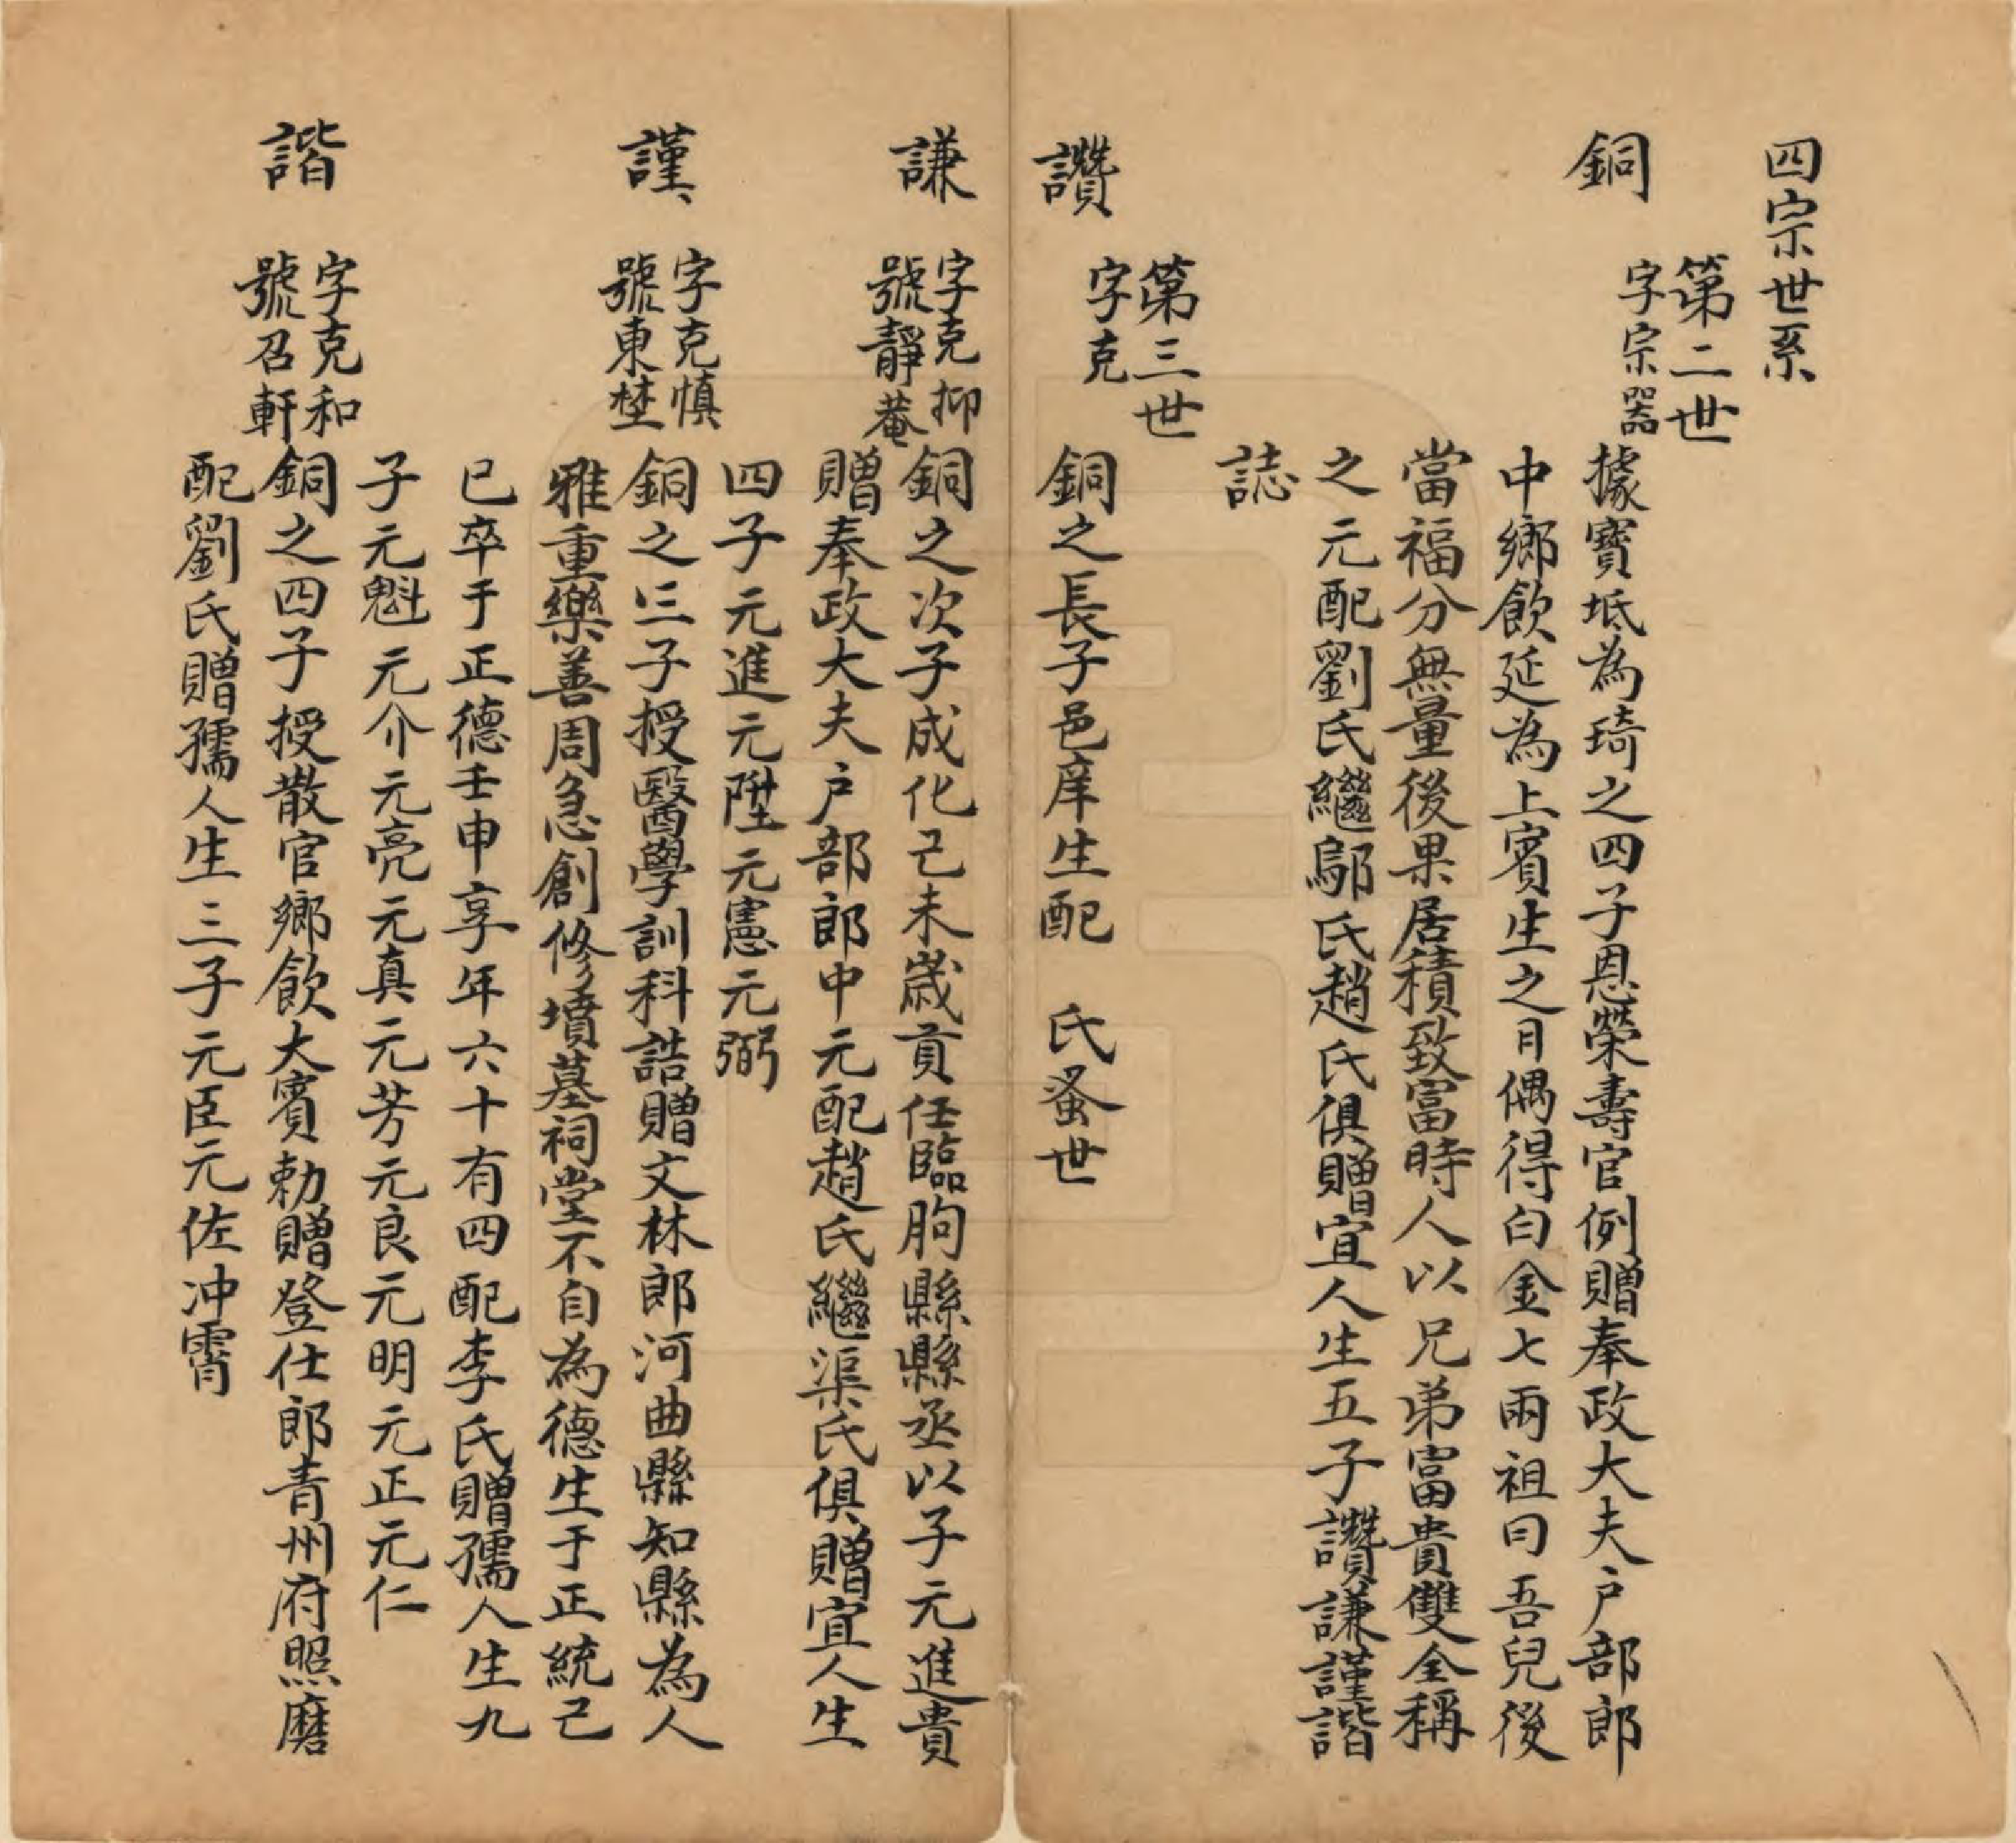 四宗世系
第二世
銅 字宗器
據寶坻為琦之四子恩榮壽官例贈奉政大夫户部郎
中鄉飲延為上賓生之月偶得白金七兩祖曰吾兒後
當福分無量後果居積致富時人以兄弟富貴雙全稱
之元配劉氏繼鄔氏趙氏俱贈宜人生五子讚謙謹諧
誌
第三世
讚 字克 銅之長子邑庠生配 氏蚤世
謙 字克抑 號靜菴 銅之次子成化己未歲貢任臨朐縣縣丞以子元進貴
贈奉政大夫户部郎中元配趙氏繼渠氏俱贈宜人生
四子元進元陞元憲元弼
謹 字克慎 號東埜 銅之三子授醫學訓科誥贈文林郎河曲縣知縣為人
雅重樂善周急創修墳墓祠堂不自為德生于正統己
巳卒于正德壬申享年六十有四配李氏贈孺人生九
子元魁元介元亮元真元芳元良元明元正元仁
諧 字克和 號召軒 銅之四子授散官鄉飲大賓勅贈登仕郎青州府照磨
配劉氏贈孺人生三子元臣元佐冲霄